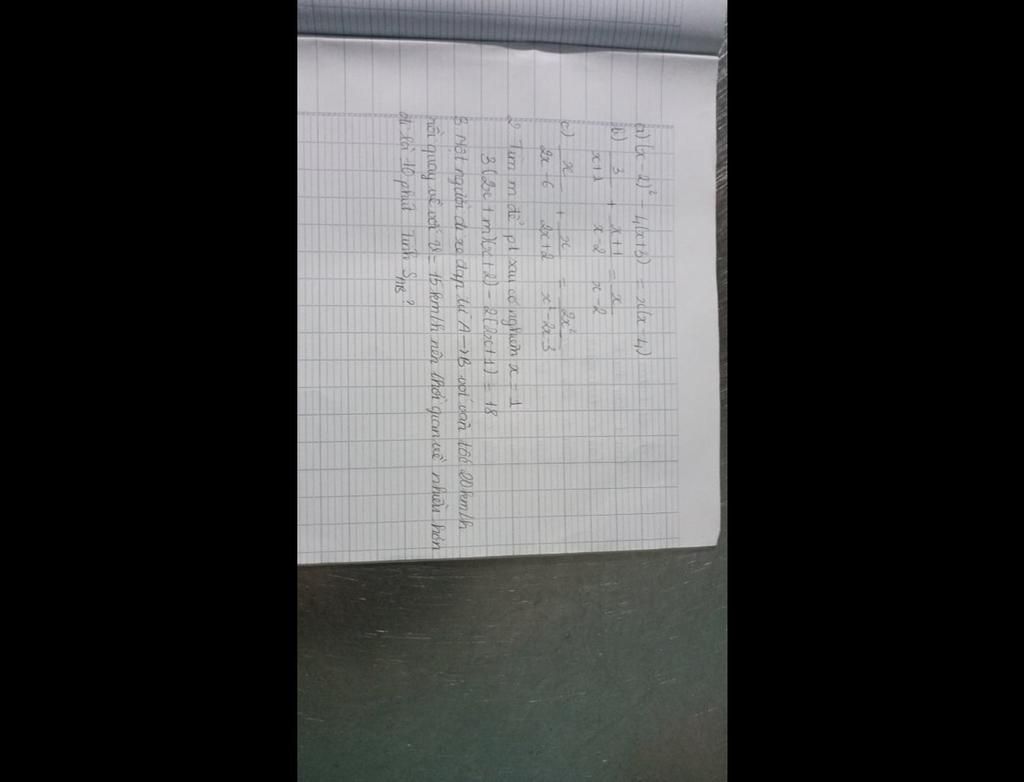 a) (x - 2)² - 4(x+3) = x(x - 4)
b) 3/(x+1) + (x+1)/(x-2) = x/(x-2)
c) x/(2x-6) + x/(2x+2) = 2x²/(x²-2x-3)
2 Tìm m để pt sau có nghiệm x = 1
3(2x + m)(x+2) - 2(2x+1) = 18
3. Một người đi xe đạp từ A→B với vận tốc 20km/h
rồi quay về với v = 15km/h nên thời gian về nhiều hơn
đi là 10 phút Tính S_AB ?